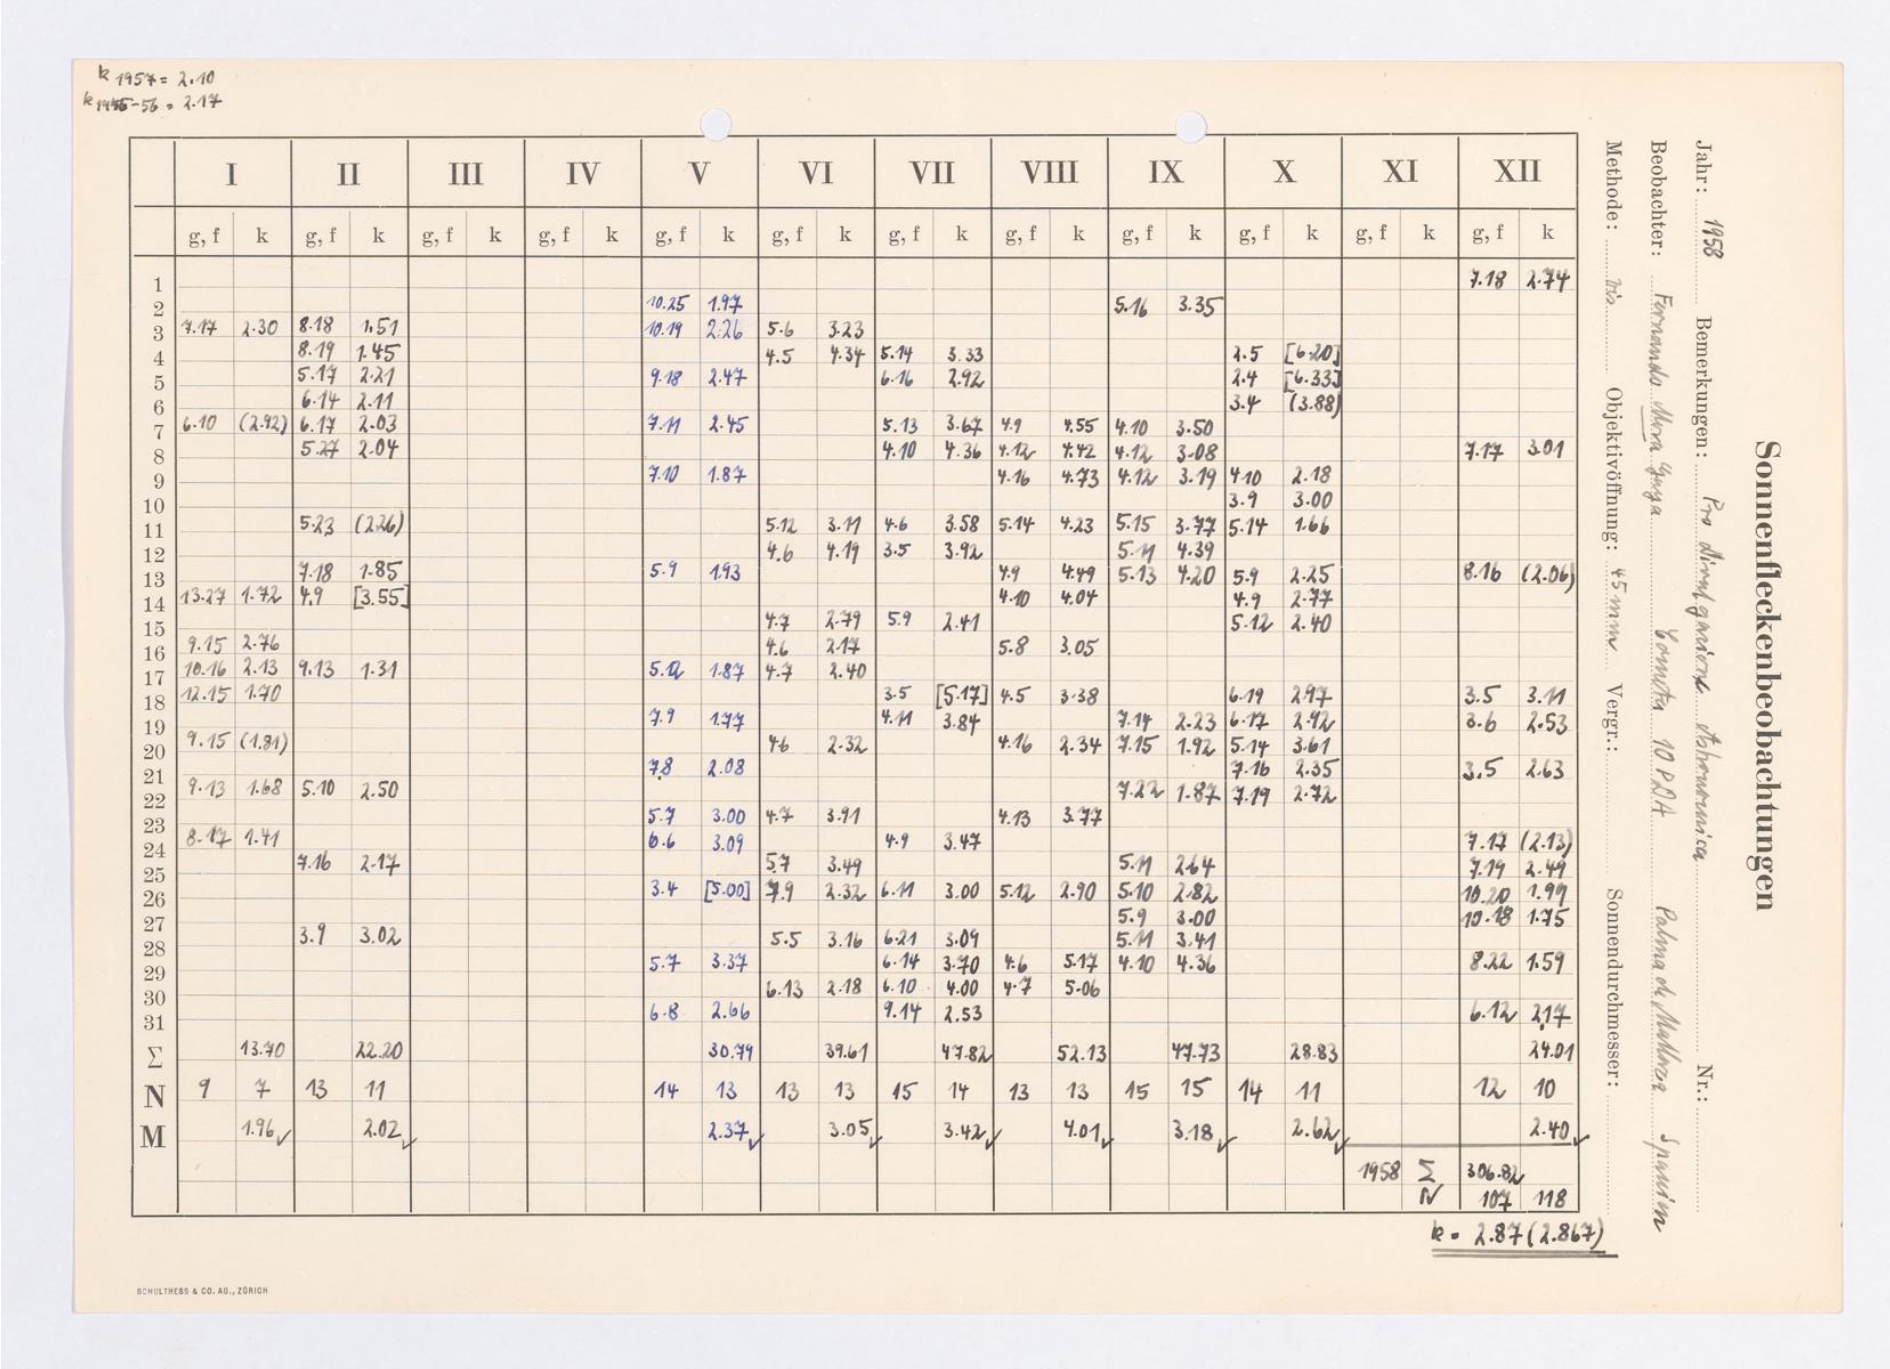 k 1957 = 2.10
k 1955-56 = 2.17
Sonnenfleckenbeobachtungen
Jahr: 1958 Bemerkungen: Nr.:
Beobachter: Fernando Cometa 10 PDA Palma de Mallorca Spanien
Methode: vis Objektivöffnung: 45 mm Vergr.: Sonnendurchmesser:
I II III IV V VI VII VIII IX X XI XII
g, f k g, f k g, f k g, f k g, f k g, f k g, f k g, f k g, f k g, f k g, f k g, f k
1 7.18 2.74
2 10.25 1.97 5.16 3.35
3 7.17 2.30 8.18 1.51 10.19 2.26 5.6 3.23
4 8.19 1.45 4.5 4.34 5.14 3.33 2.5 [6.20]
5 5.17 2.21 9.18 2.47 6.16 2.92 2.4 [6.33]
6 6.14 2.11 3.4 (3.88)
7 6.10 (2.92) 6.17 2.03 7.11 2.45 5.13 3.67 4.9 4.55 4.10 3.50
8 5.27 2.04 4.10 4.36 4.12 4.42 4.12 3.08 7.17 3.01
9 7.10 1.87 4.16 4.73 4.12 3.19 4.10 2.18
10 3.9 3.00
11 5.23 (2.26) 5.12 3.11 4.6 3.58 5.14 4.23 5.15 3.77 5.14 1.66
12 4.6 4.19 3.5 3.92 5.11 4.39
13 7.18 1.85 5.9 1.93 4.9 4.49 5.13 4.20 5.9 2.25 8.16 (2.06)
14 13.27 1.72 4.9 [3.55] 4.10 4.04 4.9 2.77
15 4.7 2.79 5.9 2.41 5.12 2.40
16 9.15 2.76 4.6 2.17 5.8 3.05
17 10.16 2.13 9.13 1.31 5.12 1.87 4.7 2.40
18 12.15 1.70 3.5 [5.17] 4.5 3.38 6.19 2.97 3.5 3.11
19 7.9 1.77 4.11 3.84 7.14 2.23 6.17 2.92 3.6 2.53
20 9.15 (1.81) 4.6 2.32 4.16 2.34 7.15 1.92 5.14 3.61
21 7.8 2.08 7.16 2.35 3.5 2.63
22 9.13 1.68 5.10 2.50 7.22 1.87 7.19 2.72
23 5.7 3.00 4.7 3.91 4.13 3.77
24 8.17 1.41 6.6 3.09 4.9 3.47 7.17 (2.13)
25 7.16 2.17 5.7 3.49 5.11 2.64 7.19 2.49
26 3.4 [5.00] 7.9 2.32 6.11 3.00 5.12 2.90 5.10 2.82 10.20 1.99
27 5.9 3.00 10.18 1.75
28 3.9 3.02 5.5 3.16 6.21 3.09 5.11 3.41
29 5.7 3.37 6.14 3.70 4.6 5.17 4.10 4.36 8.22 1.59
30 6.13 2.18 6.10 4.00 4.7 5.06
31 6.8 2.66 9.14 2.53 6.12 2.17
Σ 13.70 22.20 30.79 39.61 47.82 52.13 47.73 28.83 24.01
N 9 7 13 11 14 13 13 13 15 14 13 13 15 15 14 11 12 10
M 1.96 2.02 2.37 3.05 3.42 4.01 3.18 2.62 2.40
1958 Σ 306.82
N 107 118
k = 2.87 (2.867)
SCHULTHESS & CO. AG., ZÜRICH